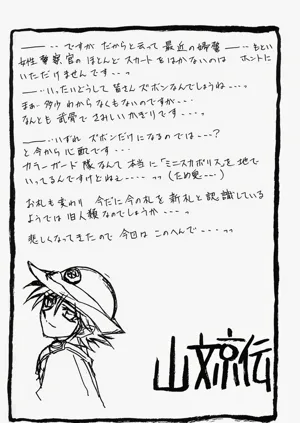 ――‥ ですが だからと云って 最近の婦警――‥ もとい
女性警察官の ほとんど スカートを はかないのは ホントに
いただけません です‥‥っ
――‥いったいどうして 皆さん ズボンなんでしょうね‥‥。
まぁ、多少 わからなくもないのですが‥‥
なんとも 武骨で さみしいかぎりです‥‥っ
――‥いずれ ズボンだけになるのでは‥‥?
と今から心配です‥‥
カラーガード 隊なんて 本当に「ミニスカポリス」を 地で
いってるんですけどねぇ‥‥ っっ (ため息‥‥)
お札も変わり 今だに 今の札を 新札と 認識している
ようでは 旧人類なのでしょうか‥‥っ
悲しくなってきたので 今回は このへんで‥‥っっ
山文京伝